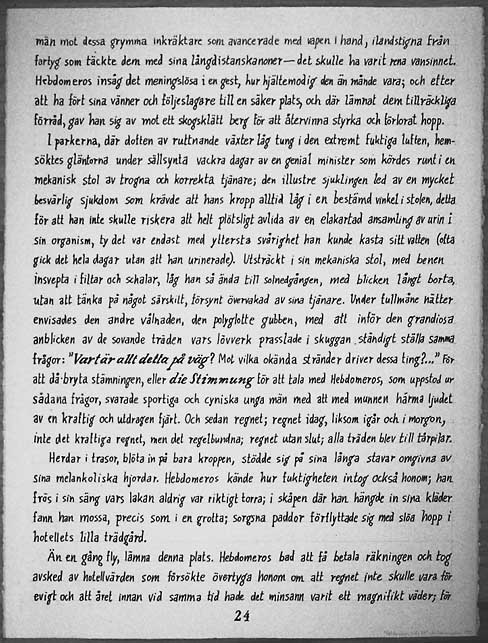 män mot dessa grymma inkräktare som avancerade med vapen i hand, ilandstigna från
fartyg som täckte dem med sina långdistanskanoner—det skulle ha varit rena vansinnet.
Hebdomeros insåg det meningslösa i en gest, hur hjältemodig den än månde vara; och efter
att ha fört sina vänner och följeslagare till en säker plats, och där lämnat dem tillräckliga
förråd, gav han sig av mot ett skogsklätt berg för att återvinna styrka och förlorat hopp.
I parkerna, där doften av ruttnande växter låg tung i den extremt fuktiga luften, hem-
söktes gläntorna under sällsynta vackra dagar av en genial minister som kördes runt i en
mekanisk stol av trogna och korrekta tjänare; den illustre sjuklingen led av en mycket
besvärlig sjukdom som krävde att hans kropp alltid låg i en bestämd vinkel i stolen, detta
för att han inte skulle riskera att helt plötsligt avlida av en elakartad ansamling av urin i
sin organism, ty det var endast med yttersta svårighet han kunde kasta sitt vatten (ofta
gick det hela dagar utan att han urinerade). Utsträckt i sin mekaniska stol, med benen
insvepta i filtar och schalar, låg han så ända till solnedgången, med blicken långt borta,
utan att tänka på något särskilt, försynt övervakad av sina tjänare. Under fullmåne nätter
envisades den andre vålnaden, den polyglotte gubben, med att inför den grandiosa
anblicken av de sovande träden vars lövverk prasslade i skuggan ständigt ställa samma
frågor: "Vart är allt detta på väg? Mot vilka okända stränder driver dessa ting?..." För
att då bryta stämningen, eller die Stimmung för att tala med Hebdomeros, som uppstod ur
sådana frågor, svarade sportiga och cyniska unga män med att med munnen härma ljudet
av en kraftig och utdragen fjärt. Och sedan regnet; regnet idag, liksom igår och i morgon,
inte det kraftiga regnet, men det regelbundna; regnet utan slut; alla träden blev till tårpilar.
Herdar i trasor, blöta in på bara kroppen, stödde sig på sina långa stavar omgivna av
sina melankoliska hjordar. Hebdomeros kände hur fuktigheten intog också honom; han
frös i sin säng vars lakan aldrig var riktigt torra; i skåpen där han hängde in sina kläder
fann han mossa, precis som i en grotta; sorgsna paddor förflyttade sig med slöa hopp i
hotellets lilla trädgård.
Än en gång fly, lämna denna plats. Hebdomeros bad att få betala räkningen och tog
avsked av hotellvärden som försökte övertyga honom om att regnet inte skulle vara för
evigt och att året innan vid samma tid hade det minsann varit ett magnifikt väder; för
24